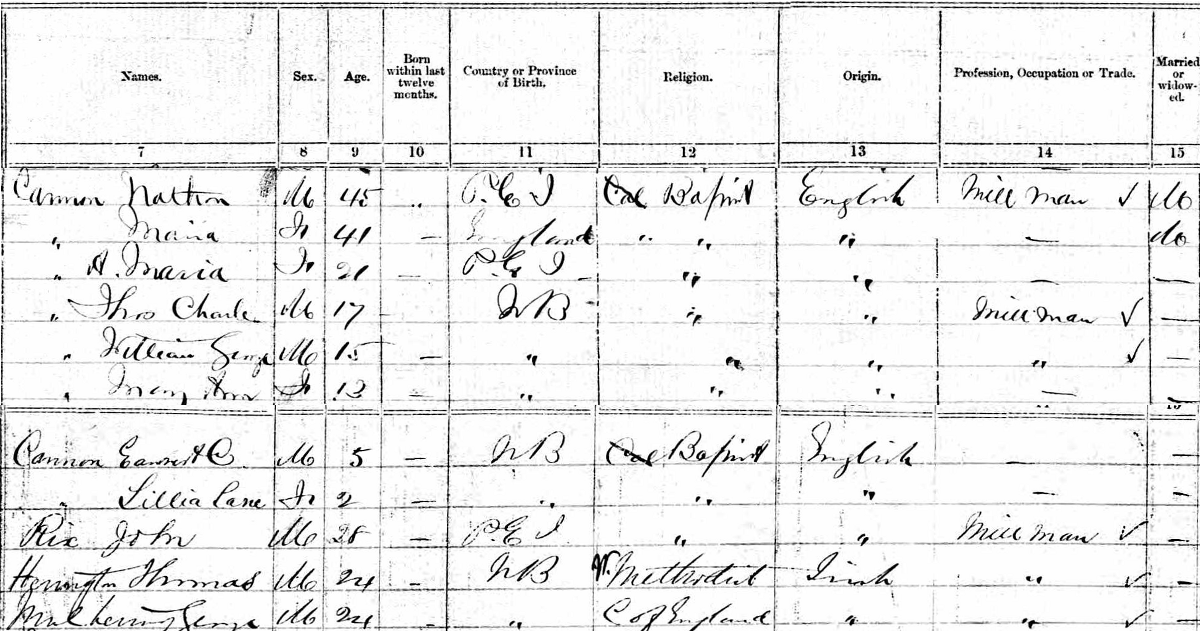 Names. Sex. Age. Born within last twelve months. Country or Province of Birth. Religion. Origin. Profession, Occupation or Trade. Married or widow-ed.
7 8 9 10 11 12 13 14 15
Cannon Nathan M 45 " P.E I Cal Baptist English Mill man ✓ M
" Maria F 41 — England " " " — M
" A. Maria F 21 — P.E I " " — —
" Thos Charles M 17 N B " " Mill man ✓ —
" William George M 15 — " " " " ✓ —
" Mary Ann F 13 — " " " — —
Cannon C. M 5 — N B Cal Baptist English — —
" Lillia Jane F 2 — " " " — —
Rix John M 28 — P.E I " " Mill man ✓ —
Thomas M 24 — N B W. Methodist Irish " ✓ —
George M 24 — " C of England " " ✓ —